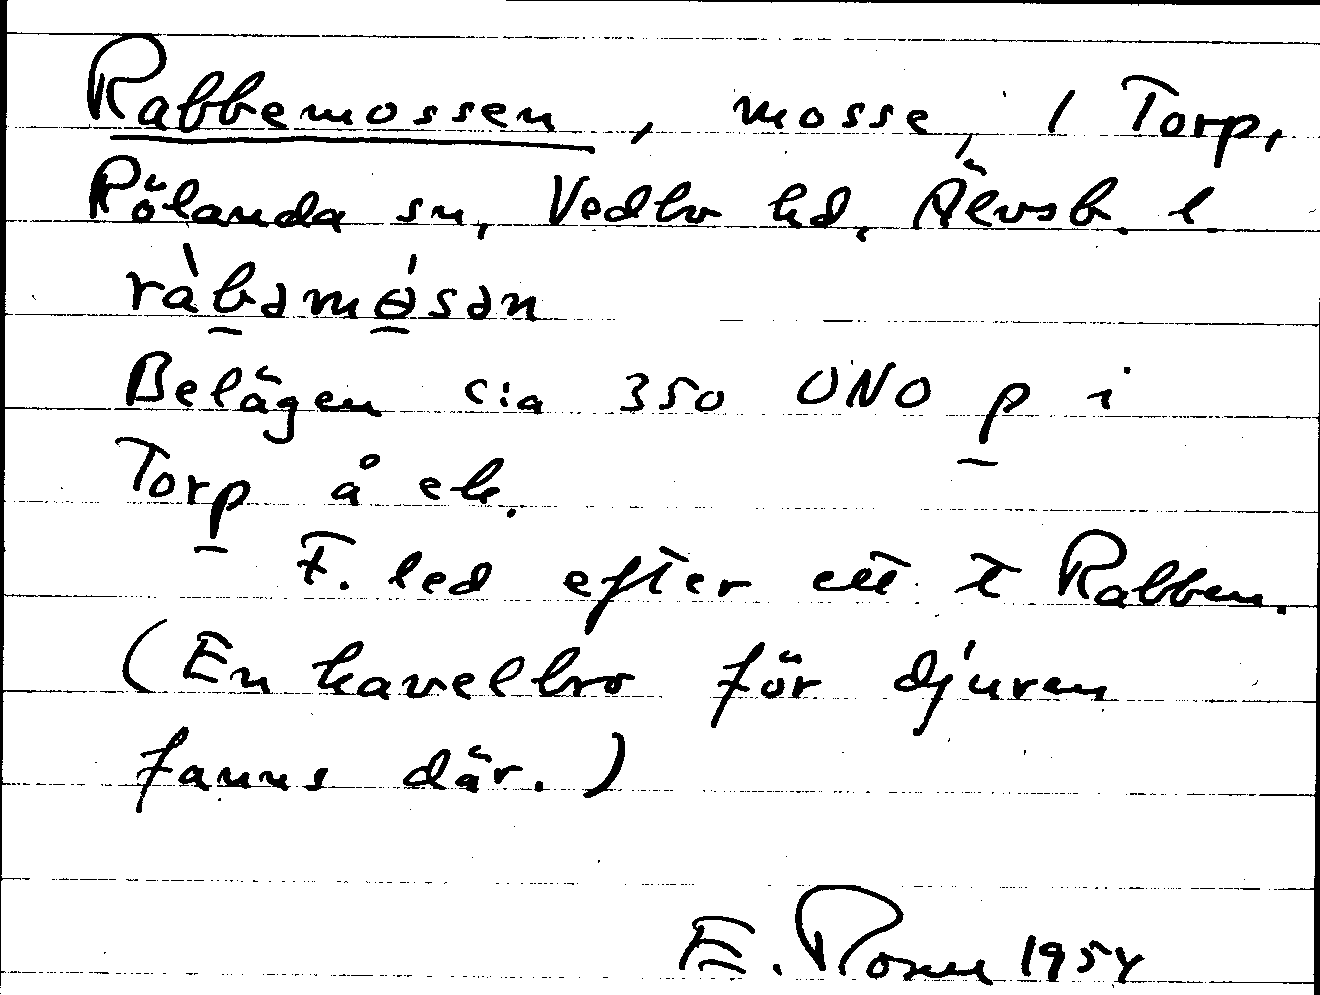 Rabbemossen, mosse, 1 Torp,
Rölanda sn, Vedbo hd, Älvsb. l.
ràbəmɵ́sən
Belägen c:a 350 ONO p i
Torp å ek.
F. led efter ett t Rabben.
(En kavelbro för djuren
fanns där.)
E. Rosen 1954